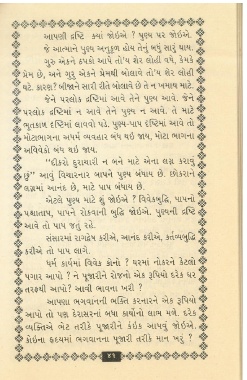 આપણી દ્રષ્ટિ ક્યાં જોઈએ ? પુણ્ય પર જોઈએ.
જે આત્માને પુણ્ય અનુકૂળ હોય તેનું બધું સારું થાય.
ગુરુ એકને ઠપકો આપે તો'ય શેર લોહી વધે, કેમકે
પ્રેમ છે, અને ગુરુ એકને પ્રેમથી બોલાવે તો'ય શેર લોહી
ઘટે. કારણ? બીજાને સારી રીતે બોલાવે છે તે ન ખમાય માટે.
જેને પરલોક દ્રષ્ટિમાં આવે તેને પુણ્ય આવે. જેને
પરલોક દ્રષ્ટિમાં ન આવે તેને પુણ્ય ન આવે. તે માટે
ભૂતકાળ દ્રષ્ટિમાં લાવવો પડે. પુણ્ય-પાપ દ્રષ્ટિમાં આવે તો
મોટાભાગના અધર્મ વ્યવહાર બંધ થઈ જાય, મોટા ભાગના
અવિવેકો બંધ થઈ જાય.
"દીકરો દુરાચારી ન બને માટે એના લગ્ન કરાવું
છું" આવું વિચારનાર બાપને પુણ્ય બંધાય છે. છોકરાને
લગ્નમાં આનંદ છે, માટે પાપ બંધાય છે.
એટલે પુણ્ય માટે શું જોઈએ ? વિવેકબુદ્ધિ, પાપનો
પશ્ચાતાપ, પાપને રોકવાની બુદ્ધિ જોઈએ. પુણ્યની દ્રષ્ટિ
આવે તો પાપ જતું રહે.
સંસારમાં રાગદ્વેષ કરીએ, આનંદ કરીએ, કર્તવ્યબુદ્ધિ
કરીએ તો પાપ લાગે.
ધર્મ કાર્યમાં વિવેક કોનો ? ઘરમાં નોકરને કેટલો
પગાર આપો ? ને પૂજારીને રોજનો એક રૂપિયો દરેક ઘર
તરફથી આપો? આવી ભાવના ખરી ?
આપણા ભગવાનની ભક્તિ કરનારને એક રૂપિયો
આપો તો પણ દેરાસરનાં બધા કાર્યોનો લાભ મળે. દરેક
વ્યક્તિએ ભેટ તરીકે પૂજારીને કંઈક આપવું જોઈએ.
કોઈના હૃદયમાં ભગવાનના પૂજારી તરીકે માન ખરું ?
૪૧